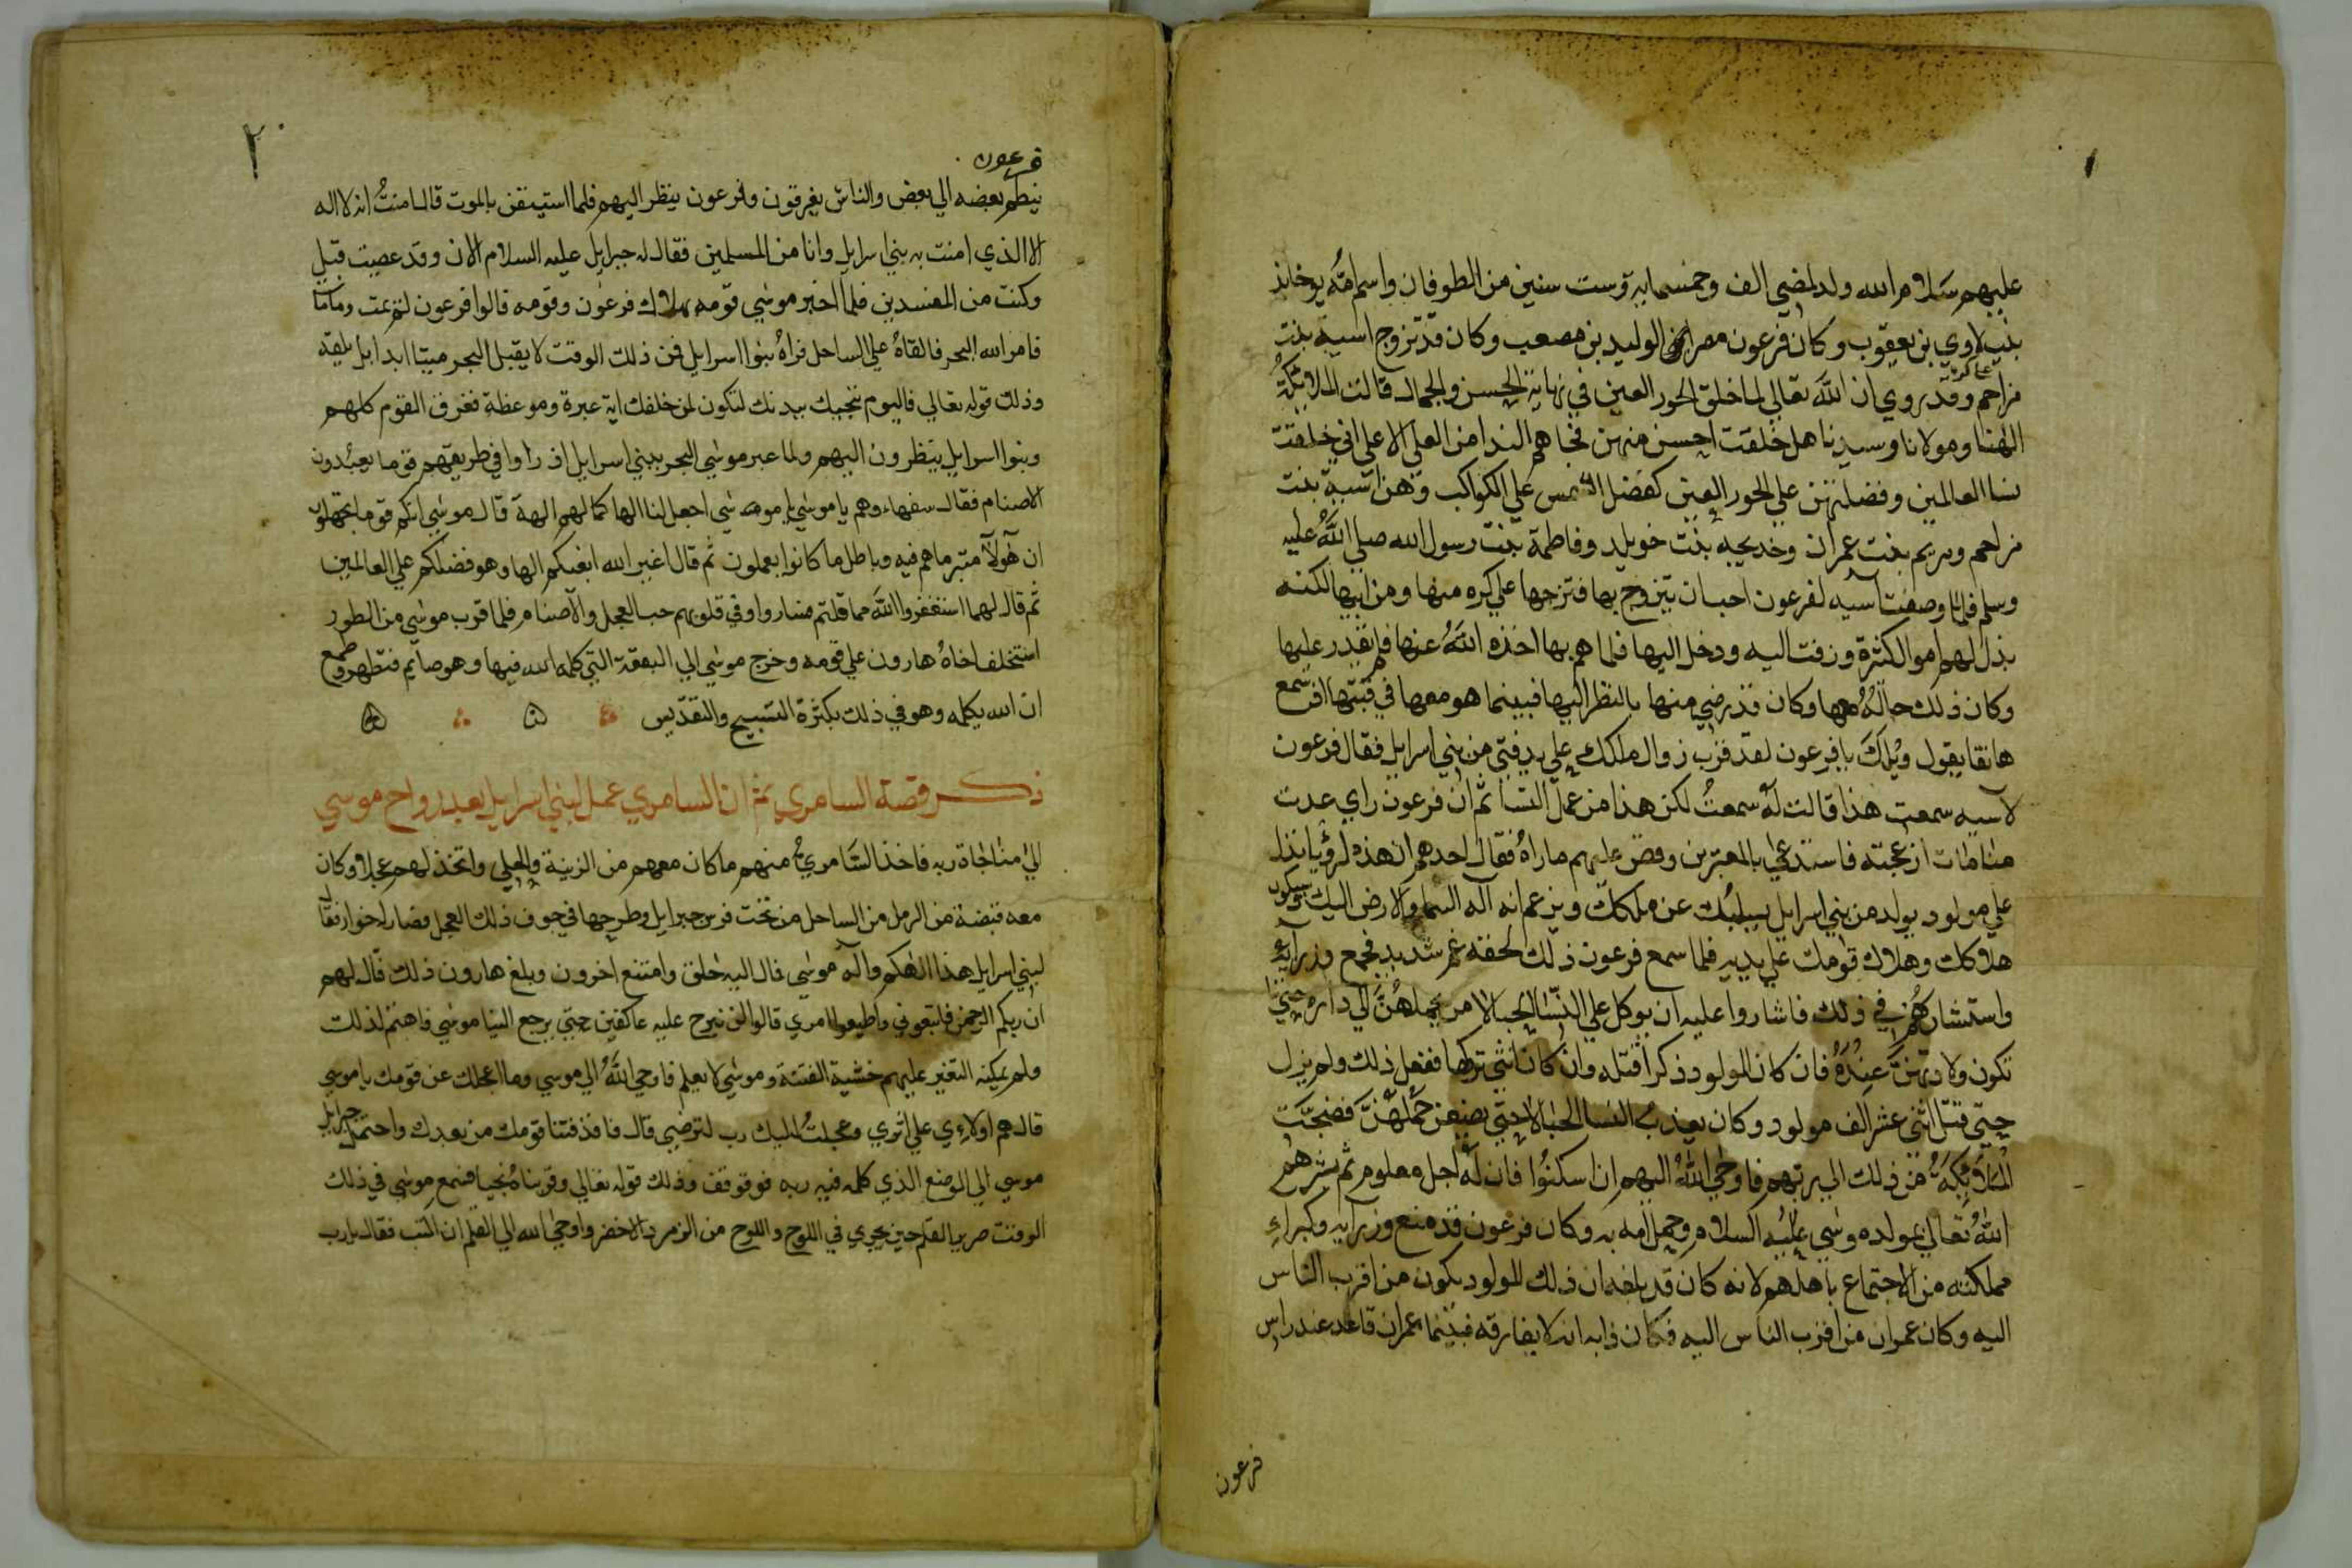 ١
عليهم سلام الله ولد لمضي الف وخمسمايه وست سنين من الطوفان واسم امه يوخابذ
بنت لاوي بن يعقوب وكان فرعون مصر الوليد بن مصعب وكان قد تزوج اسية بنت
مزاحم وقد روي ان الله تعالي لما خلق الحور العين في نهاية الحسن والجمال قالت الملايكة
الهنا ومولانا وسيدنا هل خلقت احسن منهن فجاهم الندا من العلي الاعلي اني خلقت
نسا العالمين وفضلتهن علي الحور العين كفضل الشمس علي الكواكب وهن اسية بنت
مزاحم ومريم بنت عمران وخديجه بنت خويلد وفاطمة بنت رسول الله صلي الله عليه
وسلم فلما وصفت اسيه لفرعون احب ان يتزوج بها فتزوجها علي كره منها ومن ابيها لكنه
بذل لهم اموال كثيرة وزفت اليه ودخل اليها فلما هم بها اخذه الله عنها فلم يقدر عليها
وكان ذلك حاله معها وكان قد رضي منها بالنظر اليها فبينما هو معها في قبتها اذ سمع
هاتفا يقول ويلك يافرعون لقد قرب زوال ملكك علي يد فتي من بني اسرايل فقال فرعون
لاسيه سمعت هذا قالت له سمعت لكن هذا من عمل ثم ان فرعون راي عدت
منامات ازعجته فاستدعي بالمعبرين وقص عليهم ماراه فقال احدهم ان هذه الرؤيا تدل
علي مولود يولد من بني اسرايل يسلبك عن ملكك ويزعم انه اله السما والارض اليك سيكون
هلاكك وهلاك قومك علي يديه فلما سمع فرعون ذلك لحقه غم شديد فجمع وزرايه
واستشارهم في ذلك فاشاروا عليه ان يوكل علي النسا الحبالا من يحملهن الي داره حتي
تكون ولادتهن عنده فان كان المولود ذكرا قتله وان كان انثي تركها ففعل ذلك ولم يزل
حتي قتل اثني عشر الف مولود وكان يعذب النسا الحبالا حتي يضعن حملهن فضجت
الملايكة من ذلك الي ربهم فاوحي الله اليهم ان اسكنوا فان له اجل معلوم ثم بشرهم
الله تعالي بمولد موسي عليه السلام وحمل امه به وكان فرعون قد منع وزرايه وكبراء
مملكته من الاجتماع باهلهم لانه كان قد بلغه ان ذلك المولود يكون من اقرب الناس
اليه وكان عمران من اقرب الناس اليه فكان دابه انه لا يفارقه فبينما عمران قاعد عند راس
فرعون
٢٠
فرعون
ينطم بعضه الي بعض والناس يغرقون وفرعون ينظر اليهم فلما استيقن بالموت قال امنت انه لا اله
الا الذي امنت به بني اسرايل وانا من المسلمين فقال له جبرايل عليه السلام الان وقد عصيت قبل
وكنت من المفسدين فلما اخبر موسي قومه بهلاك فرعون وقومه قالوا فرعون لم يمت وما مات
فامر الله البحر فالقاه علي الساحل فراه بنوا اسرايل فمن ذلك الوقت لا يقبل البحر ميتا ابدا بل يلقه
وذلك قوله تعالي فاليوم ننجيك ببدنك لتكون لمن خلفك اية عبرة وموعظة فغرق القوم كلهم
وبنوا اسرايل ينظرون اليهم ولما عبر موسي البحر ببني اسرايل اذ راوا في طريقهم قوما يعبدون
الاصنام فقال سفهاءوهم يا موسي يا موسي اجعل لنا الها كما لهم الهة قال موسي انكم قوم تجهلون
ان هولآ متبر ما هم فيه وباطل ما كانوا يعملون ثم قال اغير الله ابغيكم الها وهو فضلكم علي العالمين
ثم قال لهم استغفروا الله مما قلتم فساروا وفي قلوبهم حب العجل والاصنام فلما قرب موسي من الطور
استخلف اخاه هارون علي قومه وخرج موسي الي البقعة التي كلمه الله فيها وهو صايم فتطهر وطمع
ان الله يكلمه وهو في ذلك بكثرة التسبيح والتقديس
ذكر قصة السامري ثم ان السامري عمل لبني اسرايل بعد رواح موسي
الي مناجاة ربه فاخذ السامري منهم ما كان معهم من الزينة والحلي واتخذ لهم عجلا وكان
معه قبضة من الرمل من الساحل من تحت فرس جبرايل وطرحها في جوف ذلك العجل فصار له خوار فقال
لبني اسرايل هذا الهكم واله موسي فمال اليه خلق وامتنع اخرون وبلغ هارون ذلك قال لهم
ان ربكم الرحمن فاتبعوني واطيعوا امري قالوا لن نبرح عليه عاكفين حتي يرجع الينا موسي فاهتم لذلك
ولم يمكنه التغير عليهم خشية الفتنة وموسي لا يعلم فاوحي الله الي موسي وما اعجلك عن قومك يا موسي
قال هم اولاءي علي اثري وعجلت اليك رب لترضي قال فانا قد فتنا قومك من بعدك واحتمل جبرايل
موسي الي الموضع الذي كلمه فيه ربه فوقوقف وذلك قوله تعالي وقربناه نجيا فسمع موسي في ذلك
الوقت صرير القلم حين يجري في اللوح واللوح من الزمرد الاخضر واوحي الله الي القلم ان اكتب فقال يارب